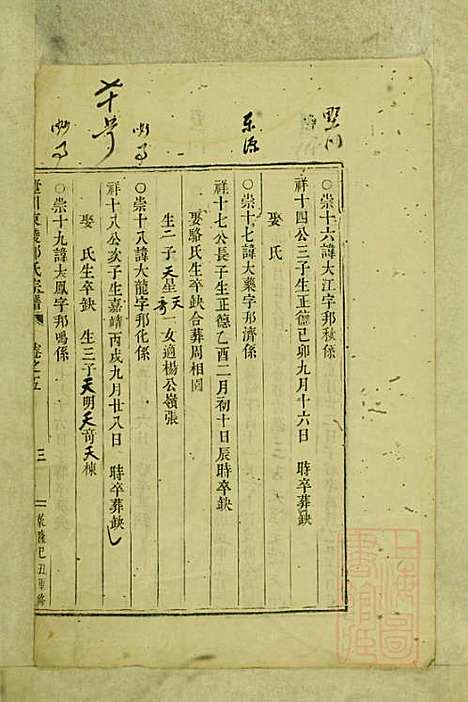 ○崇十六諱大江字邦秋係
祥十四公三子生正德己卯九月十六日 時卒葬缺
娶 氏
○崇十七諱大藥字邦濟係
祥十七公長子生正德乙酉二月初十日辰時卒缺
娶駱氏生卒缺合葬周相園
生二子天星天奇一女適楊公嶺張
○崇十八諱大龍字邦化係
祥十八公次子生嘉靖丙戌九月廿八日 時卒葬缺
娶 氏生卒缺 生三子天明天奇天棟
○崇十九諱大鳳字邦鳴係
氏宗譜 卷之五 三 乾隆己丑重修
上海圖書館藏